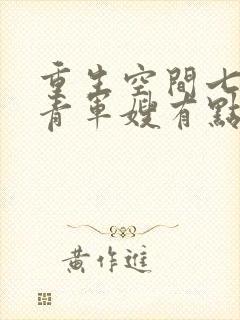 重生空間七
青軍嫂有點
黃作進